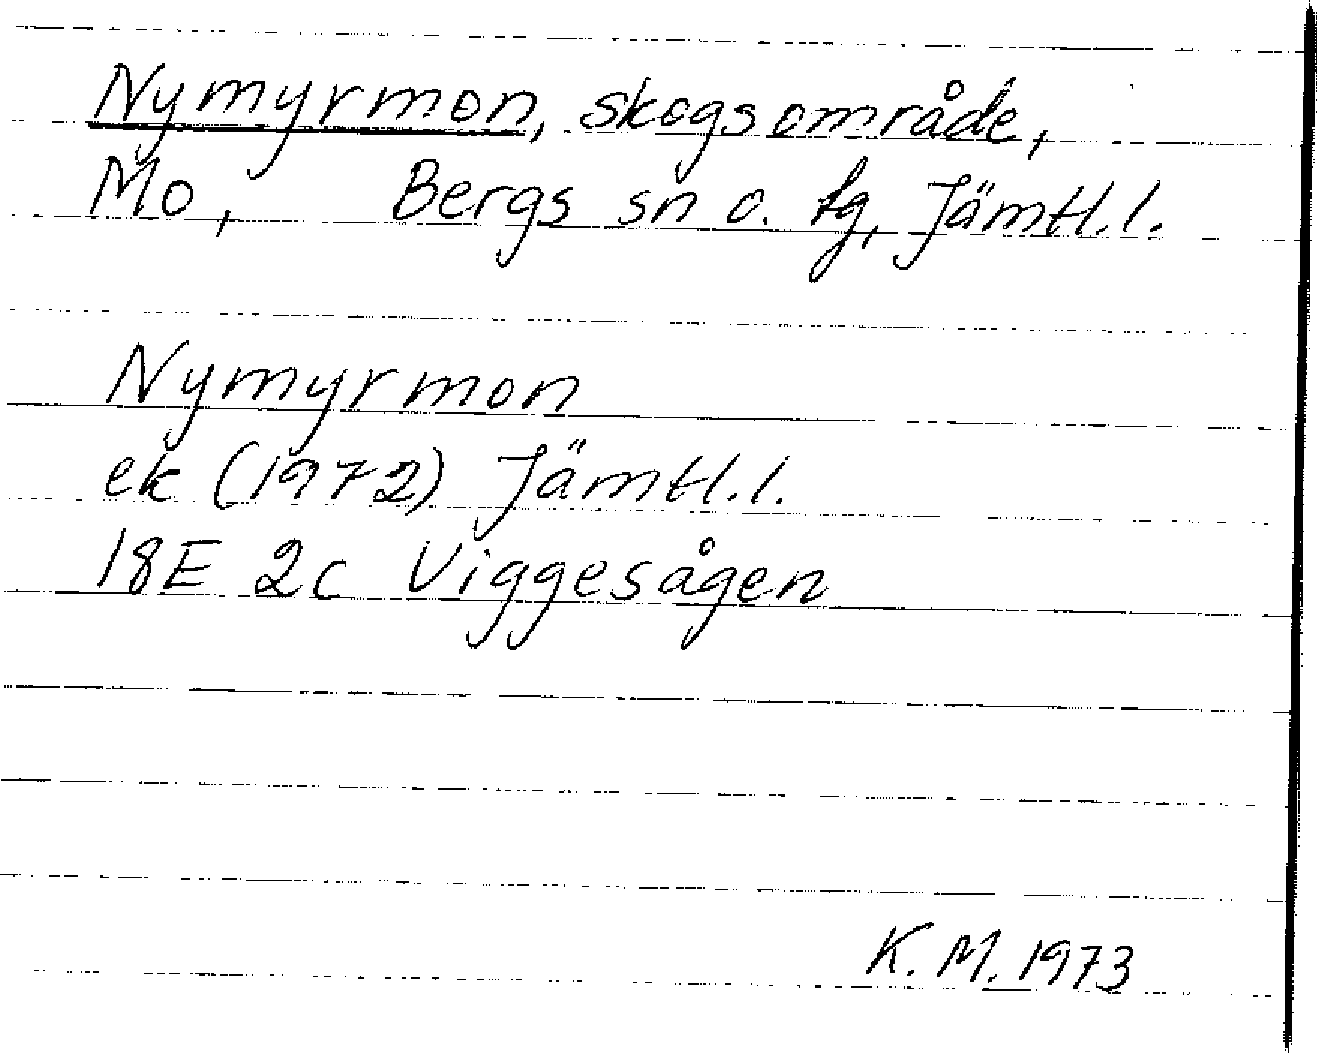 Nymyrmon, skogsområde,
Mo, Bergs sn o. tg, Jämtl.l.
Nymyrmon
ek (1972) Jämtl.l.
18E 2c Viggesågen
K.M. 1973